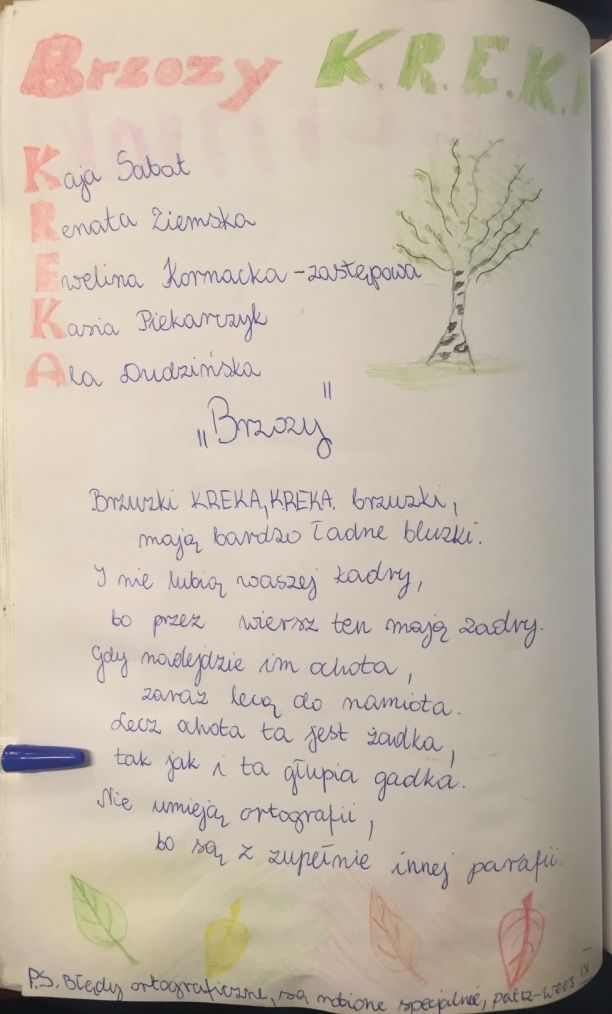 Brzozy K.R.E.K.
Kaja Sabat
Renata Ziemska
Ewelina Kormacka - zastępowa
Kasia Piekarczyk
Ala Dudzińska
"Brzozy"
Brzuzki KREKA, KREKA. brzuzki,
mają bardzo ładne bluzki.
I nie lubią waszej kadry,
bo przez wiersz ten mają zadry.
Gdy nadejdzie im ochota,
zaraz lecą do namiota.
Lecz ochota ta jest żadka,
tak jak i ta głupia gadka.
Nie umieją ortografii,
bo są z zupełnie innej parafii.
P.S. Błędy ortograficzne, są robione specjalnie, patrz - wers IX